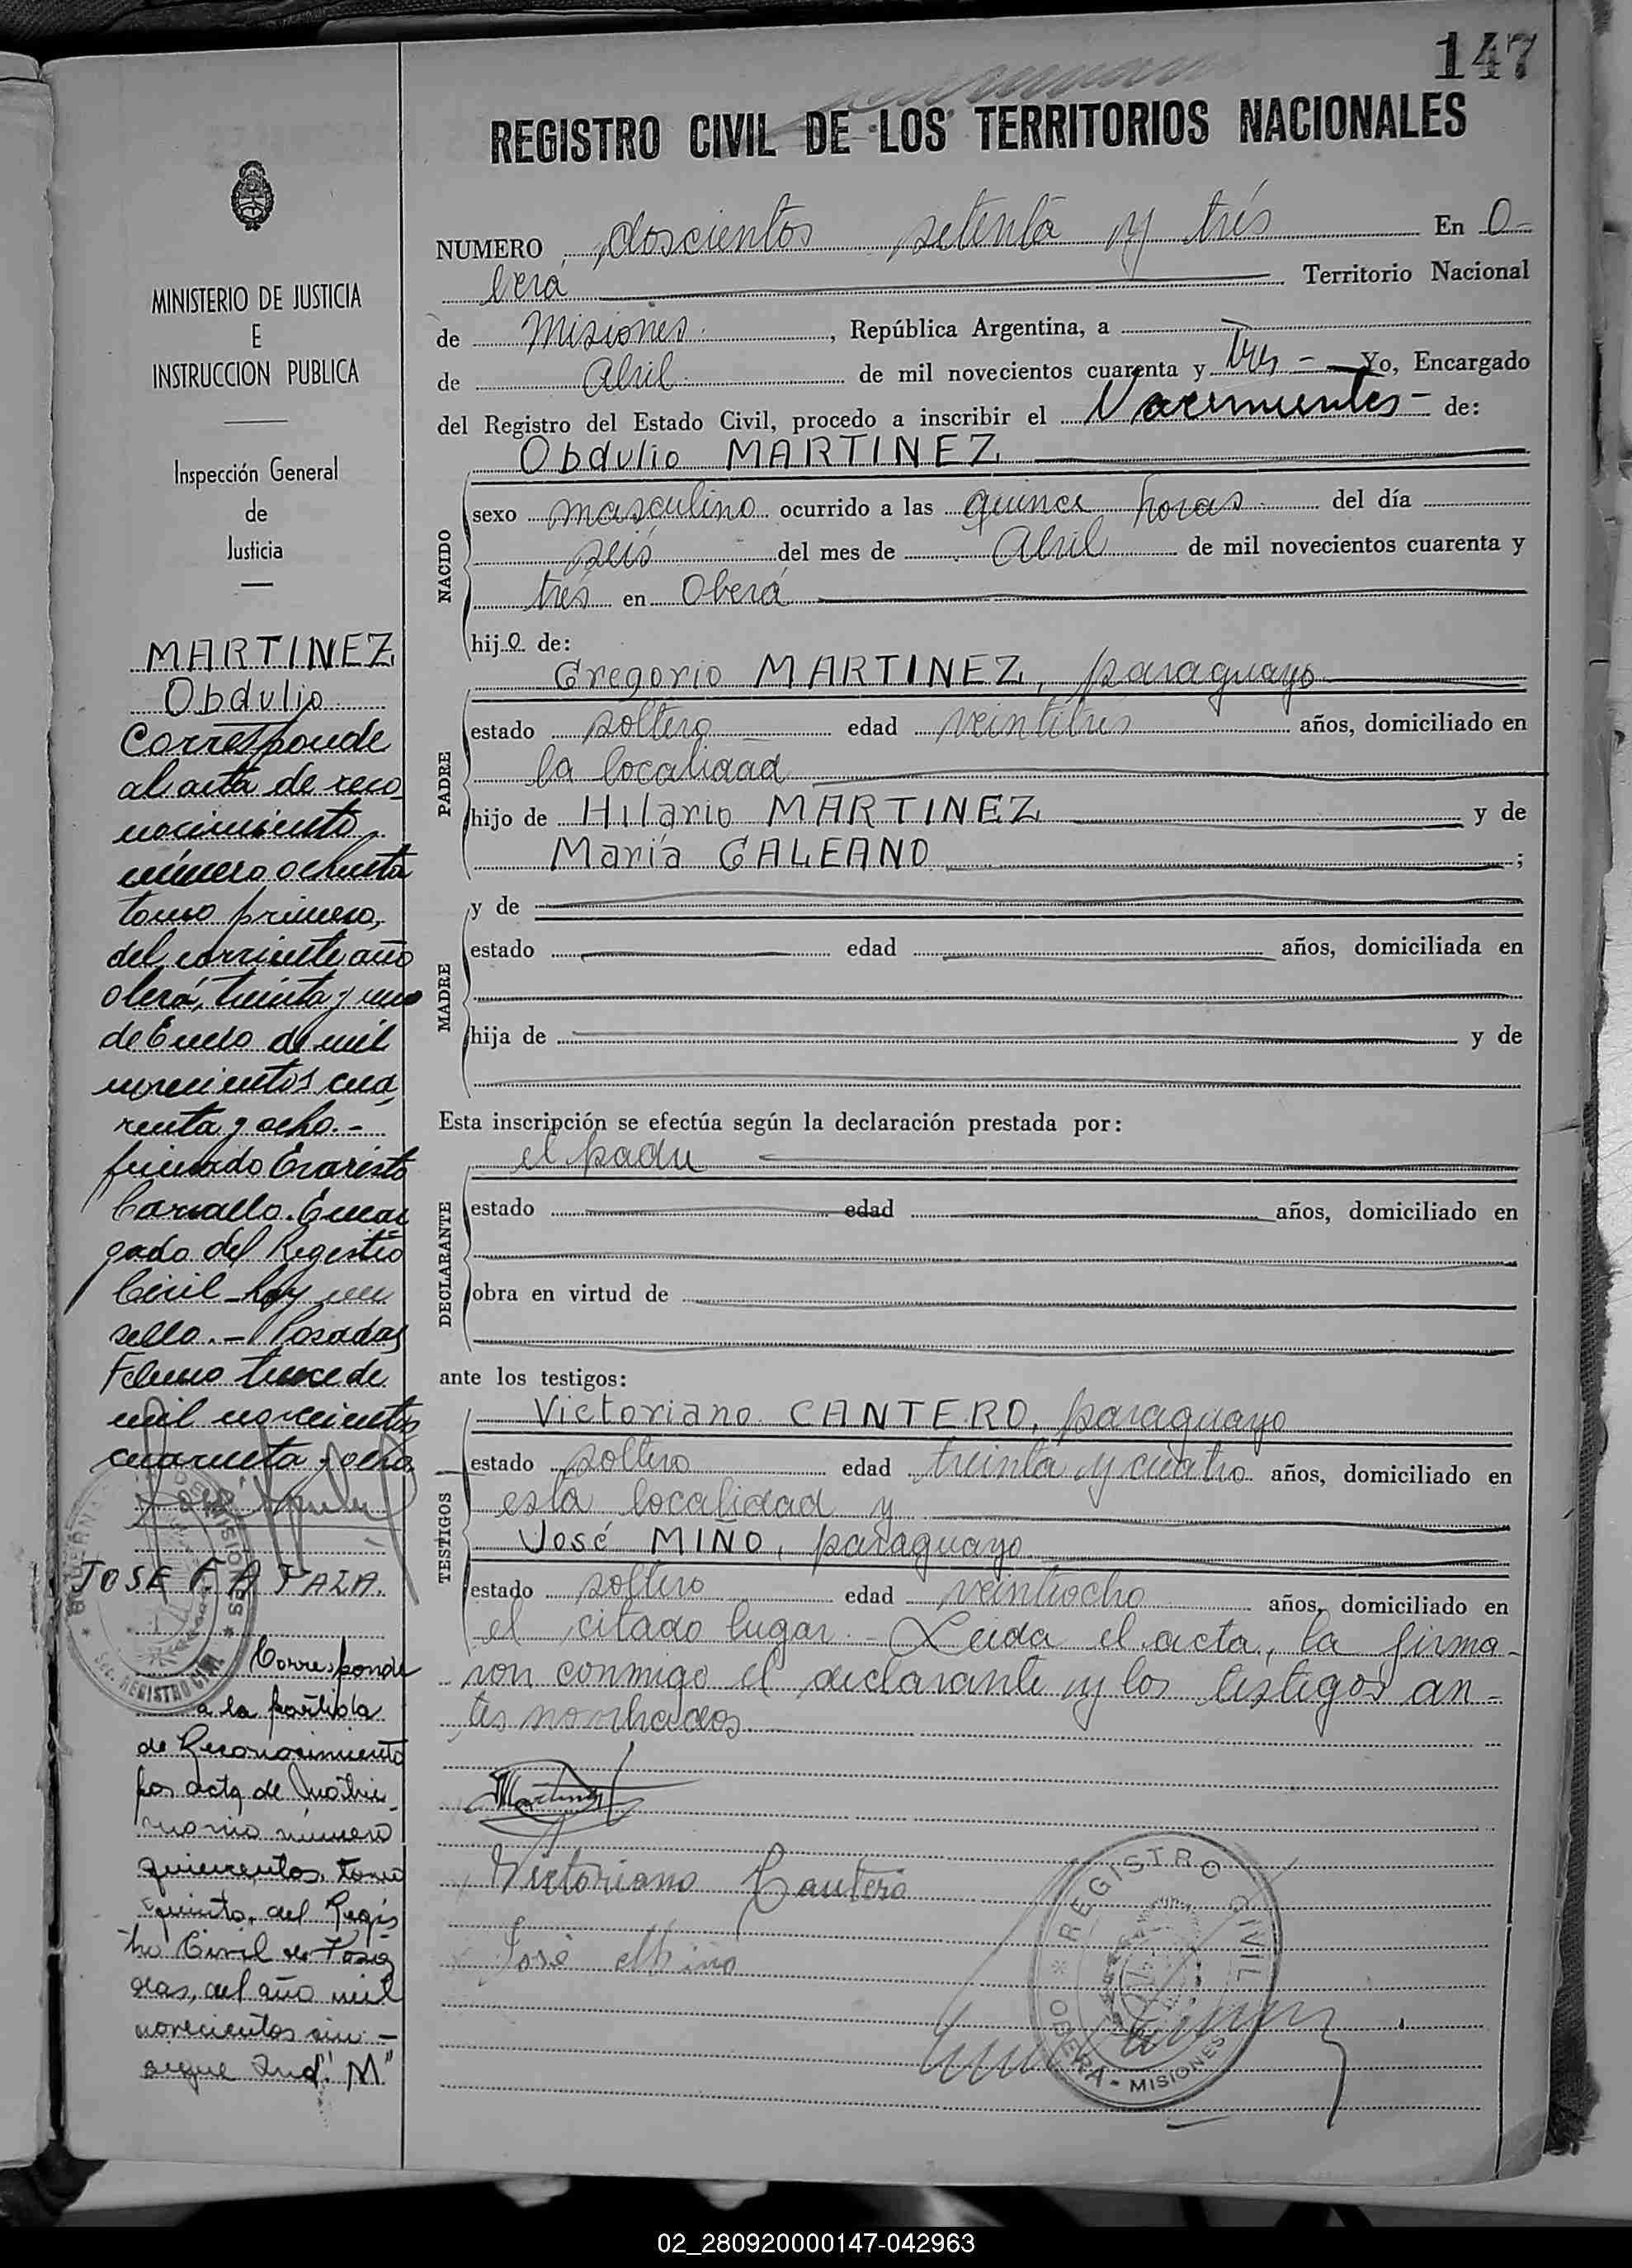 147
REGISTRO CIVIL DE LOS TERRITORIOS NACIONALES
NUMERO doscientos setenta y trés En O-
berá Territorio Nacional
de Misiones, República Argentina, a
de Abril de mil novecientos cuarenta y tres - Yo, Encargado
del Registro del Estado Civil, procedo a inscribir el Nacimientos - de:
NACIDO
Obdulio MARTINEZ
sexo masculino ocurrido a las quince horas del día
seis del mes de Abril de mil novecientos cuarenta y
trés en Oberá
hijo de:
PADRE
Gregorio MARTINEZ, paraguayo
estado soltero edad veintitres años, domiciliado en
la localidad
hijo de Hilario MARTINEZ y de
María GALEANO ;
MADRE
y de
estado edad años, domiciliada en
hija de y de
Esta inscripción se efectúa según la declaración prestada por:
DECLARANTE
el padre
estado edad años, domiciliado en
obra en virtud de
ante los testigos:
TESTIGOS
Victoriano CANTERO, paraguayo
estado soltero edad treinta y cuatro años, domiciliado en
esta localidad y
José MIÑO, paraguayo
estado soltero edad veintiocho años, domiciliado en
el citado lugar. - Leida el acta, la firma-
ron conmigo el declarante y los testigos an-
tes nombrados.
Martinez
Victoriano Cantero
José Miño
REGISTRO CIVIL
OBERÁ - MISIONES
MINISTERIO DE JUSTICIA
E
INSTRUCCION PUBLICA
Inspección General
de
Justicia
MARTINEZ
Obdulio
Corresponde
al acta de reco
nocimiento
número ochenta
tomo primero,
del corriente año
Oberá, treinta y uno
de Enero de mil
novecientos cua
renta y ocho. -
firmado Evaristo
Carvallo. Encar
gado del Registro
Civil - hay un
sello. - Posadas
Febrero trece de
mil novecientos
cuarenta y ocho
JOSE F. APAZA.
MISIONES
REGISTRO CIVIL
Corresponde
a la partida
de Reconocimiento
por acta de Matri
monio número
quinientos, tomo
quinto, del Regis
tro Civil de Posa
das, del año mil
novecientos cin -
sigue Ind. "M"
02_280920000147-042963